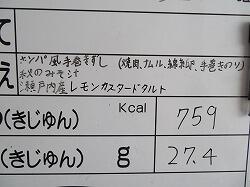 て
え
キンパ風手巻きずし（焼肉、ナムル、錦糸卵、手巻きのり）
秋のみそ汁
瀬戸内産レモンカスタードタルト
Kcal
(きじゅん)
759
(きじゅん)
g
27.4